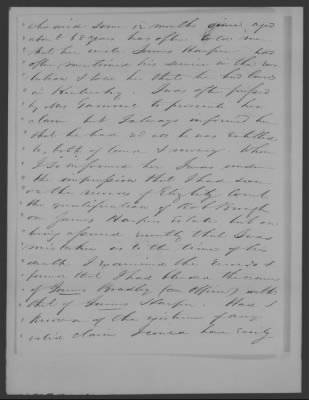 who died some 12 months since aged
about 68 years has often told me
that her uncle James Harper had
often mentioned his service in the rev
lution & told her that he had lands
in Kentucky. I was often pressed
by Mrs to present her
claim but I always informed her
that he had recd all he was entitled
to, both of land & money. When
I so informed her I was under
the impression that I had seen
on the records of Eliz City County
the qualification of
on James Harpers Estate but on
being assured recently that I was
mistaken as to the time of his
death I examined the records &
found that I had blended the name
of James Bradley (an officer) with
that of James Harper. Had I
known of the existence of any
valid claim I could have easily